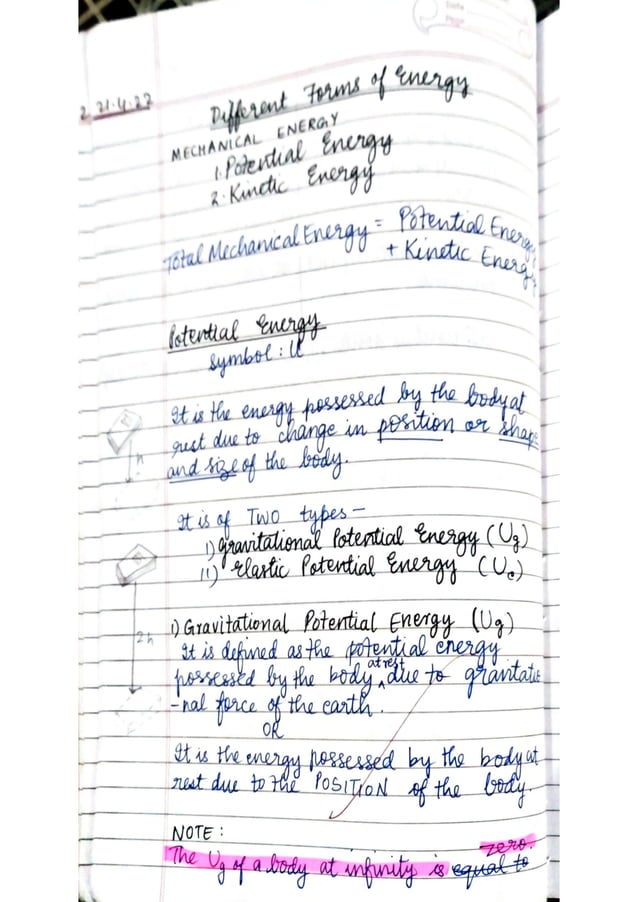 Date
Page
21.4.22
Different Forms of Energy
MECHANICAL ENERGY
1. Potential Energy
2. Kinetic Energy
Total Mechanical Energy = Potential Energy
+ Kinetic Energy
Potential Energy
Symbol : U
It is the energy possessed by the body at
rest due to change in position or shape
and size of the body.
h
It is of TWO types -
i) Gravitational Potential Energy (Ug)
ii) Elastic Potential Energy (Ue)
i) Gravitational Potential Energy (Ug)
2h
It is defined as the potential energy
possessed by the body at rest due to gravitatio
-nal force of the earth.
OR
It is the energy possessed by the body at
rest due to the POSITION of the body.
NOTE :
zero.
The Ug of a body at infinity is equal to